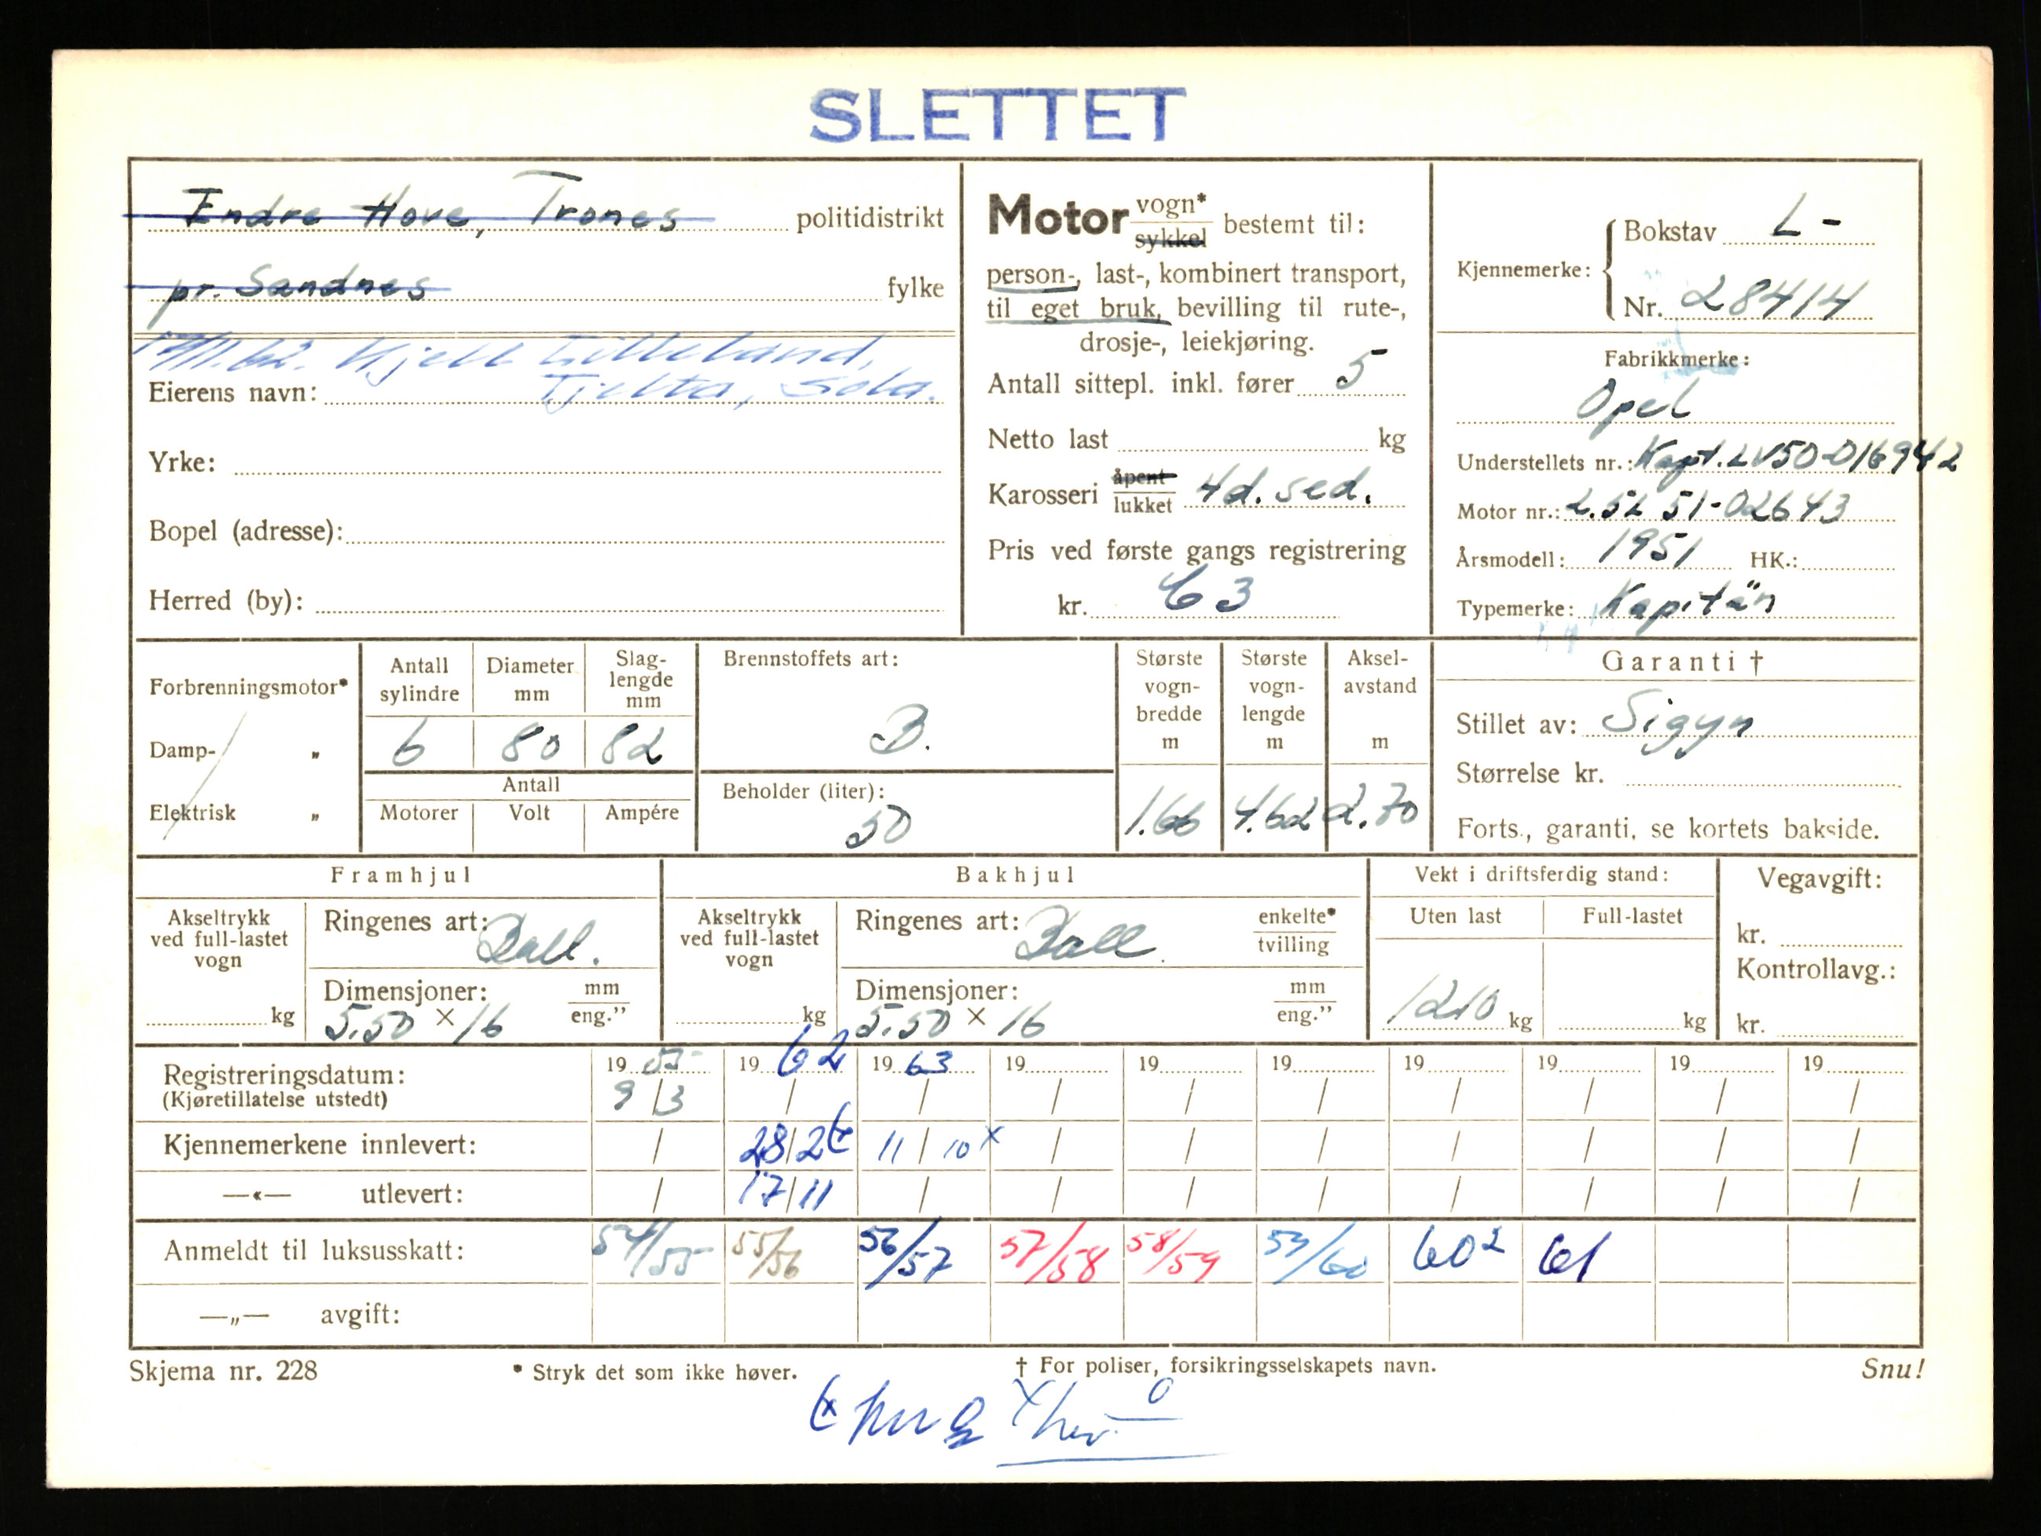 SLETTET
Endre Hove, Trones politidistrikt
pr. Sandnes fylke
17/11.62. Kjell Lilleland,
Eierens navn: Tjelta, Sola.
Yrke:
Bopel (adresse):
Herred (by):
Motor vogn* sykkel bestemt til:
person-, last-, kombinert transport,
til eget bruk, bevilling til rute-,
drosje-, leiekjøring.
Antall sittepl. inkl. fører 5
Netto last kg
Karosseri åpent lukket 4d. sed.
Pris ved første gangs registrering
kr. C3
Kjennemerke: Bokstav L-
Nr. 28414
Fabrikkmerke:
Opel
Understellets nr.: Kapt. LV50-016942
Motor nr.: 2.5L 51-02643
Årsmodell: 1951 HK.:
Typemerke: Kapitän
Forbrenningsmotor*
Damp- „
Elektrisk „
Antall sylindre Diameter mm Slag-lengde mm
6 80 82
Antall
Motorer Volt Ampére
Brennstoffets art:
B.
Beholder (liter):
50
Største vogn-bredde m Største vogn-lengde m Aksel-avstand m
1.66 4.62 2.70
Garanti †
Stillet av: Sigyn
Størrelse kr.
Forts., garanti, se kortets bakside.
Framhjul
Akseltrykk ved full-lastet vogn
kg
Ringenes art: Ball.
Dimensjoner: mm eng.”
5.50 × 16
Bakhjul
Akseltrykk ved full-lastet vogn
kg
Ringenes art: Ball. enkelte* tvilling
Dimensjoner: mm eng.”
5.50 × 16
Vekt i driftsferdig stand:
Uten last Full-lastet
1210 kg kg
Vegavgift:
kr.
Kontrollavg.:
kr.
Registreringsdatum: 19 55 19 62 19 63 19 19 19 19 19 19 19
(Kjøretillatelse utstedt) 9/3 / / / / / / / / /
Kjennemerkene innlevert: / 28/2 11/10 x / / / / / / /
—«— utlevert: / 17/11 / / / / / / / /
Anmeldt til luksusskatt: 54/55 55/56 56/57 57/58 58/59 59/60 60² 61
—„— avgift:
Skjema nr. 228 * Stryk det som ikke høver. † For poliser, forsikringsselskapets navn. Snu!